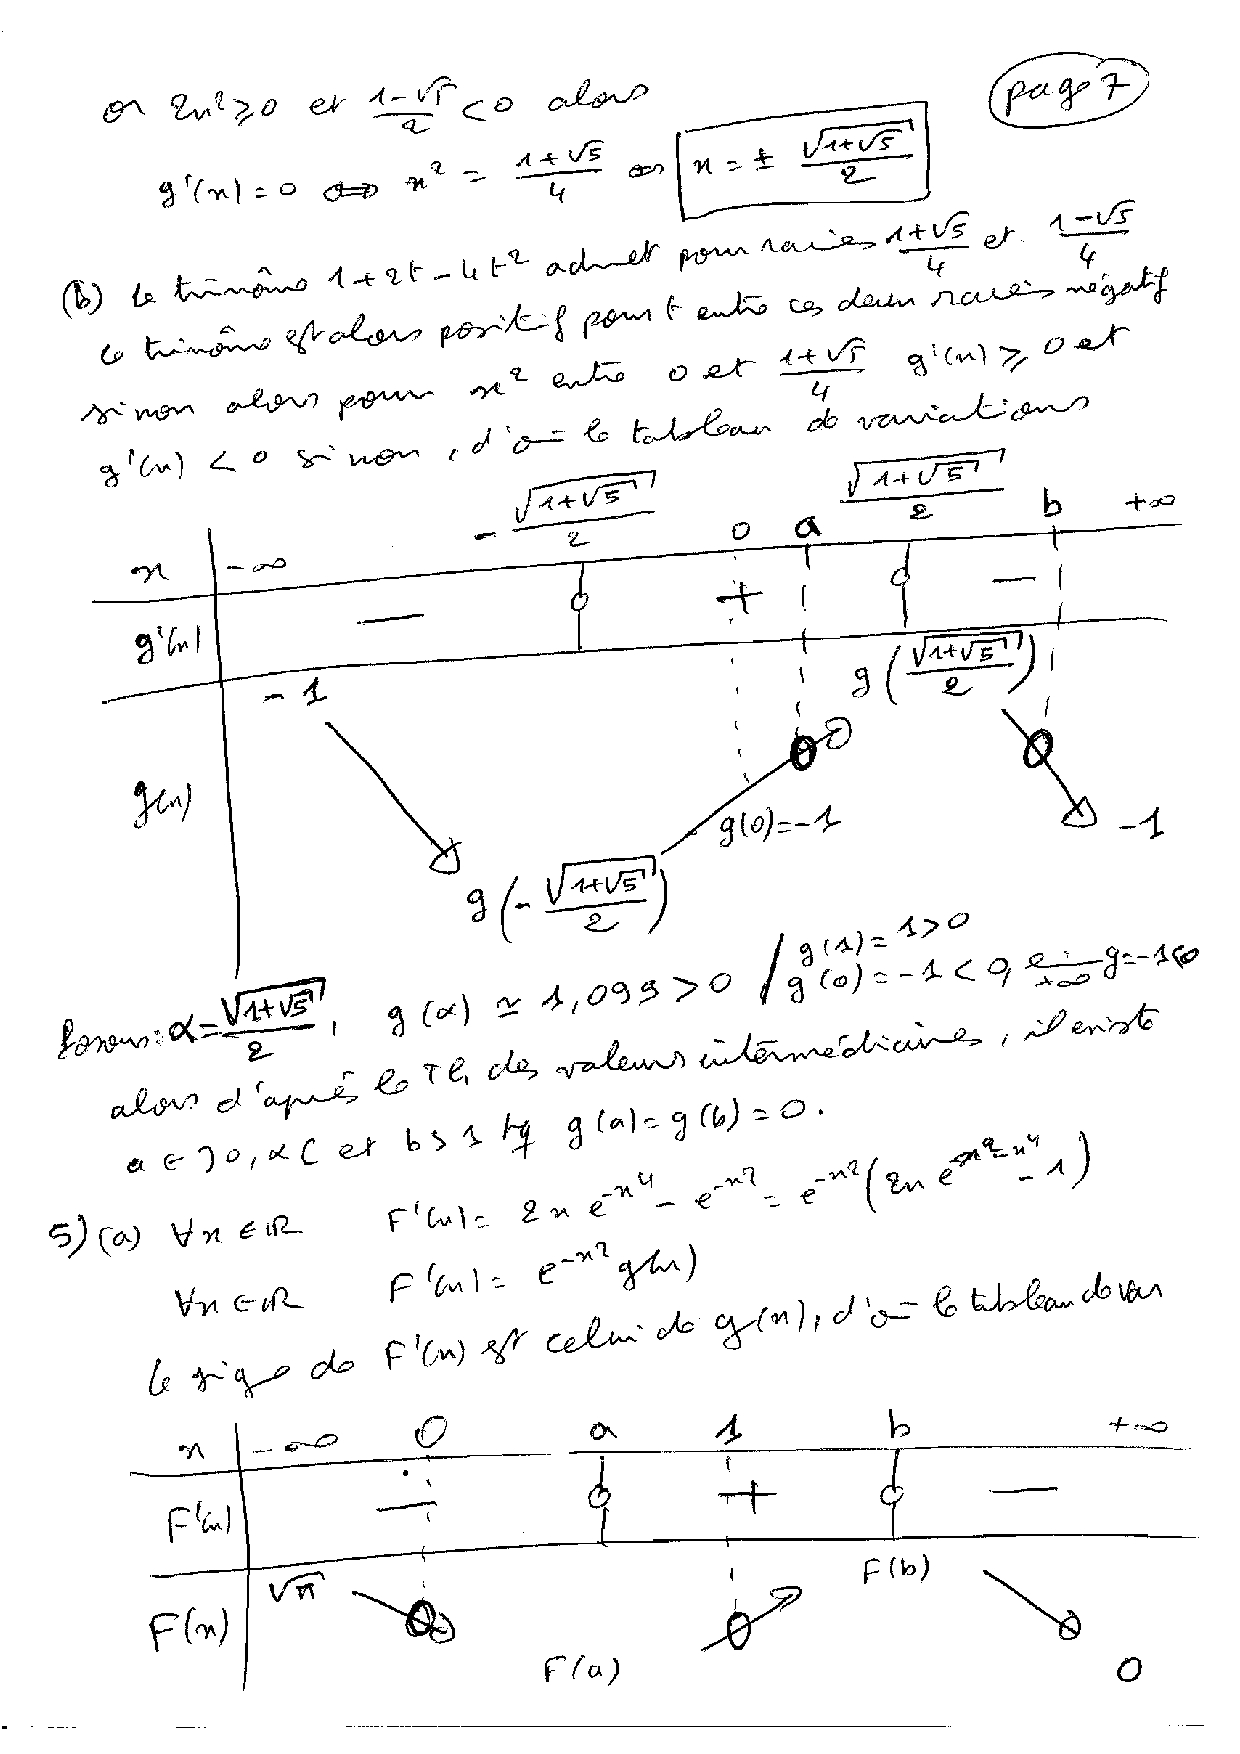 page 7
or 2x² ⩾ 0 et (1-√5)/2 < 0 alors
g'(x) = 0 ⟺ x² = (1+√5)/4 ⟺ x = ± √(1+√5)/2
(b) le trinôme 1+2t-4t² admet pour racines (1+√5)/4 et (1-√5)/4
le trinôme est alors positif pour t entre ces deux racines négatif
sinon alors pour x² entre 0 et (1+√5)/4 g'(x) ⩾ 0 et
g'(x) < 0 sinon, d'où le tableau de variations
x | -∞ -√(1+√5)/2 0 a √(1+√5)/2 b +∞
g'(x) | - 0 + 0 -
g(x) | -1 g(-√(1+√5)/2) g(0)=-1 0 g(√(1+√5)/2) 0 -1
Posons: α = √(1+√5)/2, g(α) ≃ 1,099 > 0 / g(1) = 1 > 0
g(0) = -1 < 0, +∞ g = -1 < 0
alors d'après le Th des valeurs intermédiaires, il existe
a ∈ ]0, α[ et b > 1 tq g(a) = g(b) = 0.
5) (a) ∀x ∈ ℝ F'(x) = 2x e^{-x⁴} - e^{-x²} = e^{-x²}(2x e^{x²-x⁴} - 1)
∀x ∈ ℝ F'(x) = e^{-x²} g(x)
le signe de F'(x) est celui de g(x), d'où le tableau de var
x | -∞ 0 a 1 b +∞
F'(x) | - 0 + 0 -
F(x) | √π 0 F(a) 0 F(b) 0